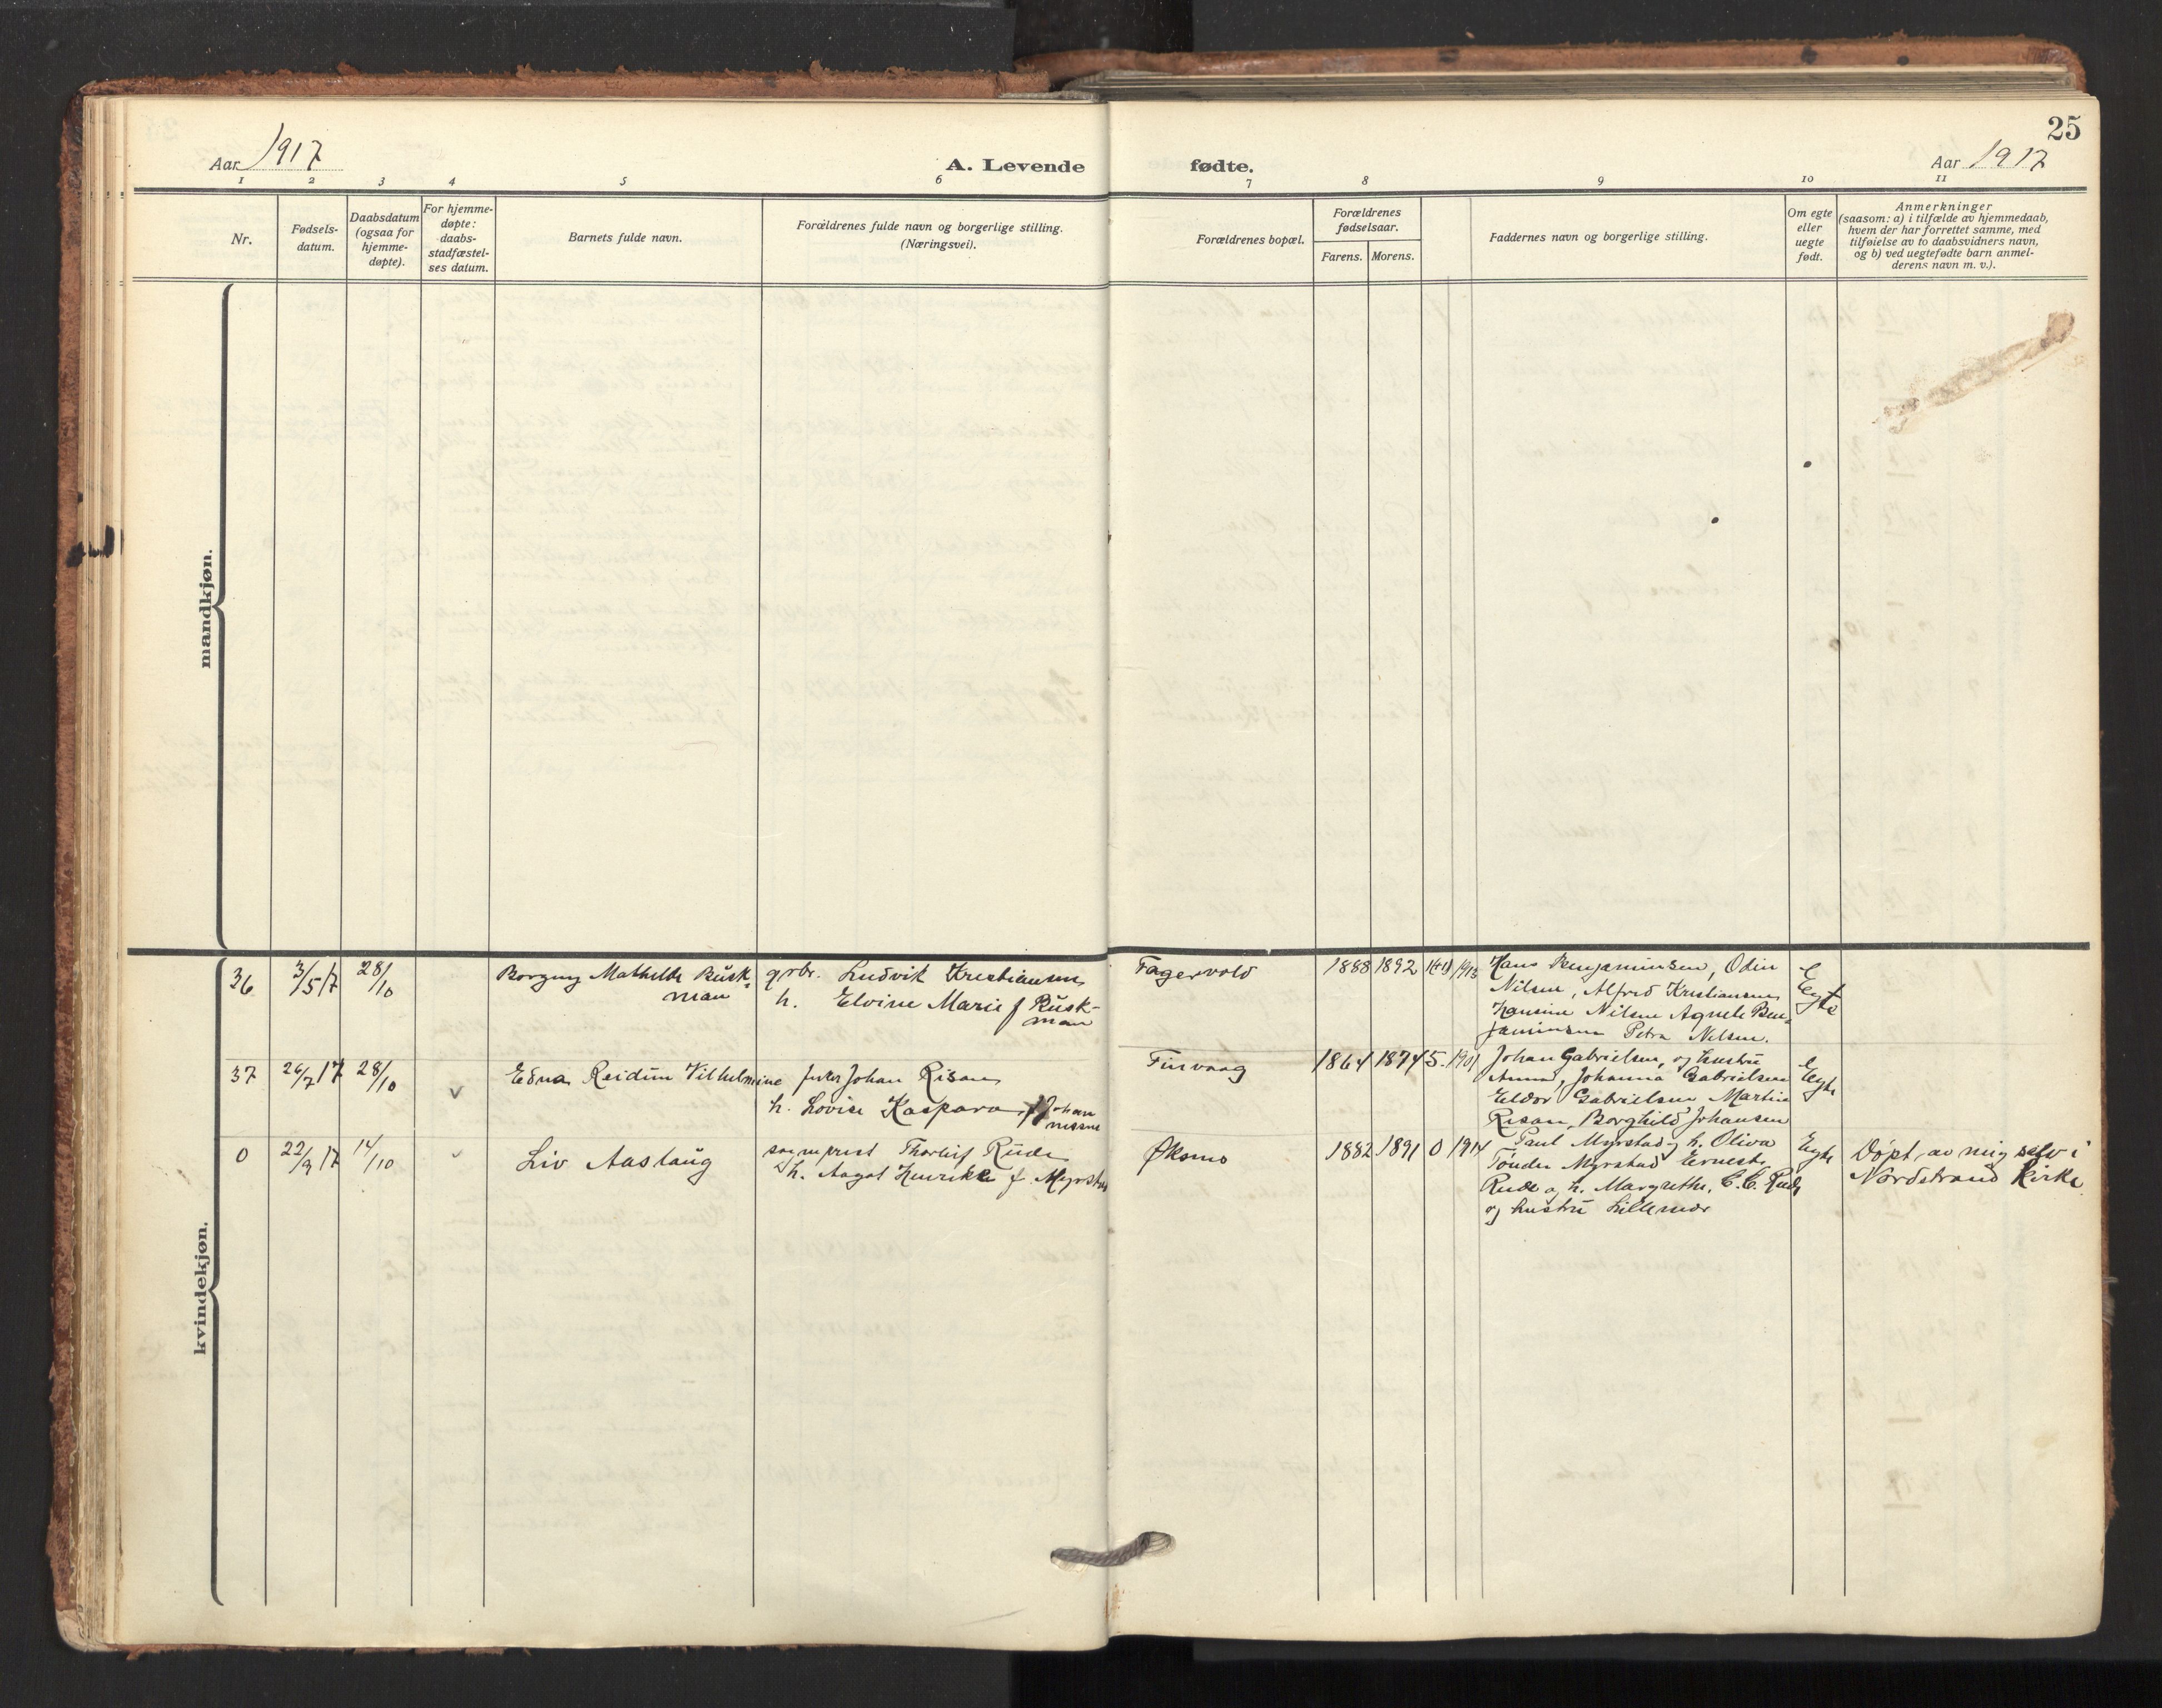 25
Aar 1917
A. Levende fødte.
Aar 1917
1 2 3 4 5 6 7 8 9 10 11
Nr.
Fødsels-
datum.
Daabsdatum
(ogsaa for
hjemme-
døpte).
For hjemme-
døpte:
daabs-
stadfæstel-
ses datum.
Barnets fulde navn.
Forældrenes fulde navn og borgerlige stilling.
(Næringsvei).
Forældrenes bopæl.
Forældrenes
fødselsaar.
Farens. Morens.
Faddernes navn og borgerlige stilling.
Om egte
eller
uegte
født.
Anmerkninger
(saasom: a) i tilfælde av hjemmedaab,
hvem der har forrettet samme, med
tilføielse av to daabsvidners navn,
og b) ved uegtefødte barn anmel-
derens navn m. v.).
mandkjøn.
kvindekjøn.
36 3/5 17 28/10
Borgny Mathilde Busk-
man
grbr. Ludvik Kristiansen
h. Elvine Marie f Busk-
man
Fagervold
1888 1892 1913
Hans Benjaminsen, Odin
Nilsen, Alfred Kristiansen
Hansine Nilsen Agnete Ben-
jaminsen Petra Nilsen.
Egte
37 26/7 17 28/10 v
Edna Reidun Vilhelmine
fisker Johan Risan
h. Lovise Kaspara f Johan
nesen
Finvaag
1864 1874 5. 1901
Johan Gabrielsen, og hustru
Anna, Johanna Gabrielsen
Eldor Gabrielsen Martin
Risan, Borghild Johansen
Egte
0 22/9 17 14/10 v
Liv Aaslaug
sogneprest Thorleif Rude
h. Aagot Henrikke f. Myrstad
Øksnes
1882 1891 0 1914
Paul Myrstad og h. Oliva
Tønder Myrstad Erneste
Rude og h. Margrethe, C.C. Rude
og hustru Lillemor
Egte
Døpt av mig selv i
Nordstrand Kirke